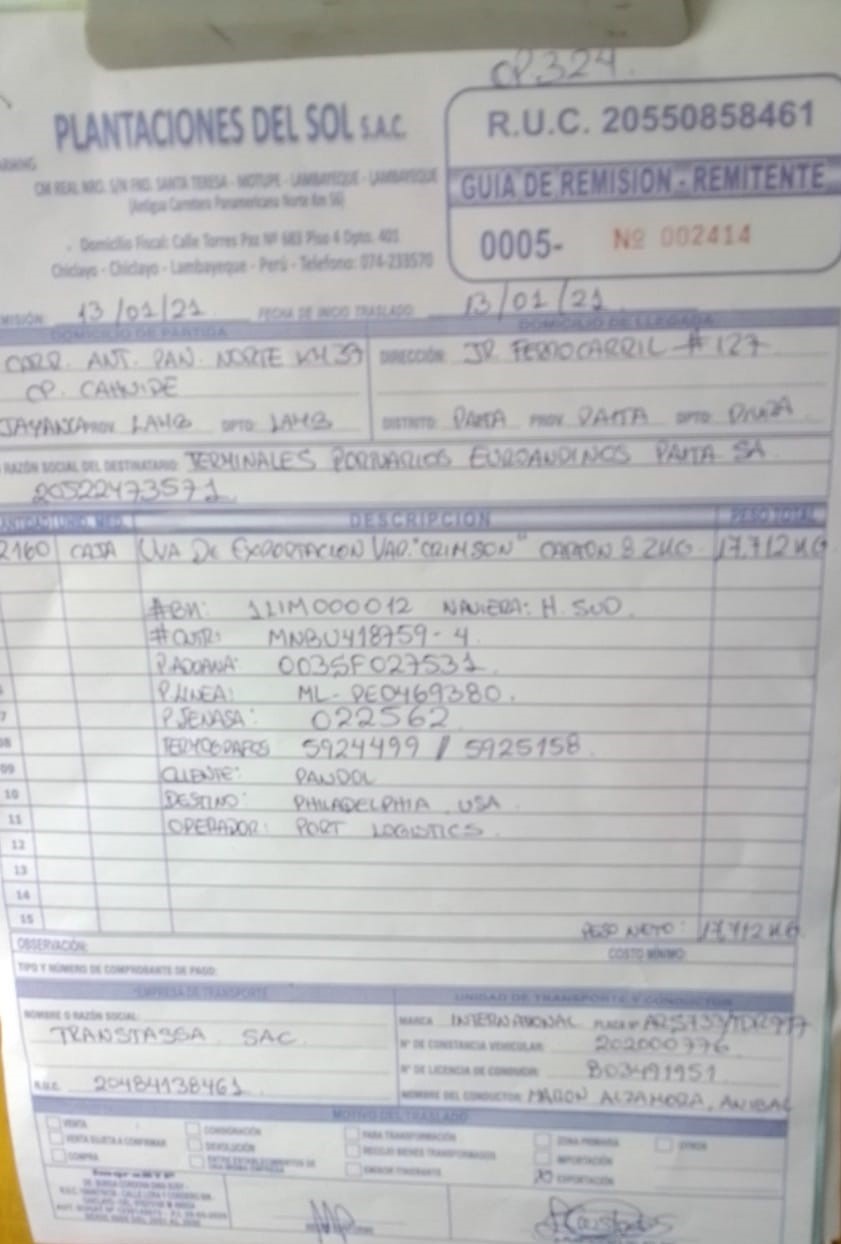 CP.324.
PLANTACIONES DEL SOL S.A.C.
R.U.C. 20550858461
CAR. REAL NRO. S/N FND. SANTA TERESA - MOTUPE - LAMBAYEQUE - LAMBAYEQUE
(Antigua Carretera Panamericana Norte Km 56)
GUIA DE REMISION - REMITENTE
Domicilio Fiscal: Calle Torres Paz Nº 683 Piso 4 Dpto. 401
Chiclayo - Chiclayo - Lambayeque - Perú - Telefono: 074-233570
0005- Nº 002414
MISIÓN: 13/01/21 FECHA DE INICIO TRASLADO: 13/01/21
DOMICILIO DE PARTIDA DOMICILIO DE LLEGADA
CARR. ANT. PAN. NORTE KM 39 DIRECCIÓN: JR FERROCARRIL # 127
CP. CAHUIDE
JAYANCA PROV. LAMB DPTO: LAMB DISTRITO: PAITA PROV. PAITA DPTO: PIURA
RAZÓN SOCIAL DEL DESTINATARIO: TERMINALES PORTUARIOS EUROANDINOS PAITA SA
20522473571
CANTIDAD UNID. MED. DESCRIPCION PESO TOTAL
2160 CAJA UVA DE EXPORTACION VAR. "CRIMSON" CARTON 8.2KG. 17,712KG
#BK: 11IM000012 NAVIERA: H. SUD.
#CNTR: MNBU418759-4
P.ADUANA: 003SF027531
P.LINEA: ML-PE0469380.
7 P.SENASA: 022562
08 TERMOGRAFOS 5924499 / 5925158
09 CLIENTE: PANDOL
10 DESTINO: PHILADELPHIA, USA
11 OPERADOR: PORT LOGISTICS.
12
13
14
15 PESO NETO: 17,712 KG.
OBSERVACIÓN: COSTO MÍNIMO:
TIPO Y NÚMERO DE COMPROBANTE DE PAGO:
EMPRESA DE TRANSPORTE UNIDAD DE TRANSPORTE Y CONDUCTOR
NOMBRE O RAZÓN SOCIAL: MARCA INTERNATIONAL PLACA Nº
TRANSTASSA SAC. Nº DE CONSTANCIA VEHICULAR: 202000776
Nº DE LICENCIA DE CONDUCIR: B03491951
R.U.C. 20484138461 NOMBRE DEL CONDUCTOR: ALZAMORA, ANIBAL
MOTIVO DEL TRASLADO
VENTA CONSIGNACIÓN PARA TRANSFORMACIÓN ZONA PRIMARIA OTROS
VENTA SUJETA A CONFIRMAR DEVOLUCIÓN RECOJO BIENES TRANSFORMADOS IMPORTACIÓN
COMPRA ENTRE ESTABLECIMIENTOS DE UNA MISMA EMPRESA EMISOR ITINERANTE X EXPORTACIÓN